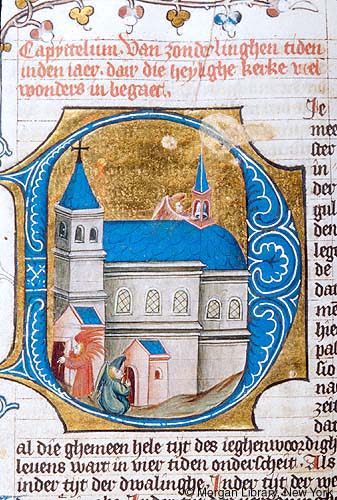 Capyttelum. Van zonderlinghen tiden
inden iaer. daer die heylighe kerke viel
wonders in begaet.
Ie
mee
ster
in
der
gul
den
lege
de
dat
mē
hie
pas
sio
na
zeit
dat
al die ghemeen hele tijt des ieghenwoordigh
leuens wart in vier tiden onderscheit. Als
inder tijt der dwalinghe. Inder tijt der we
© Morgan Library, New York